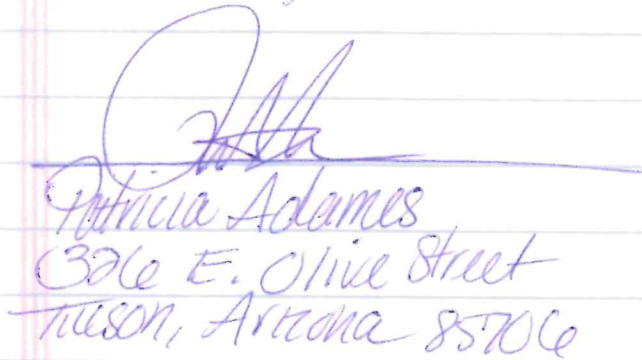 Patricia Adames
326 E. Olive Street
Tucson, Arizona 85706